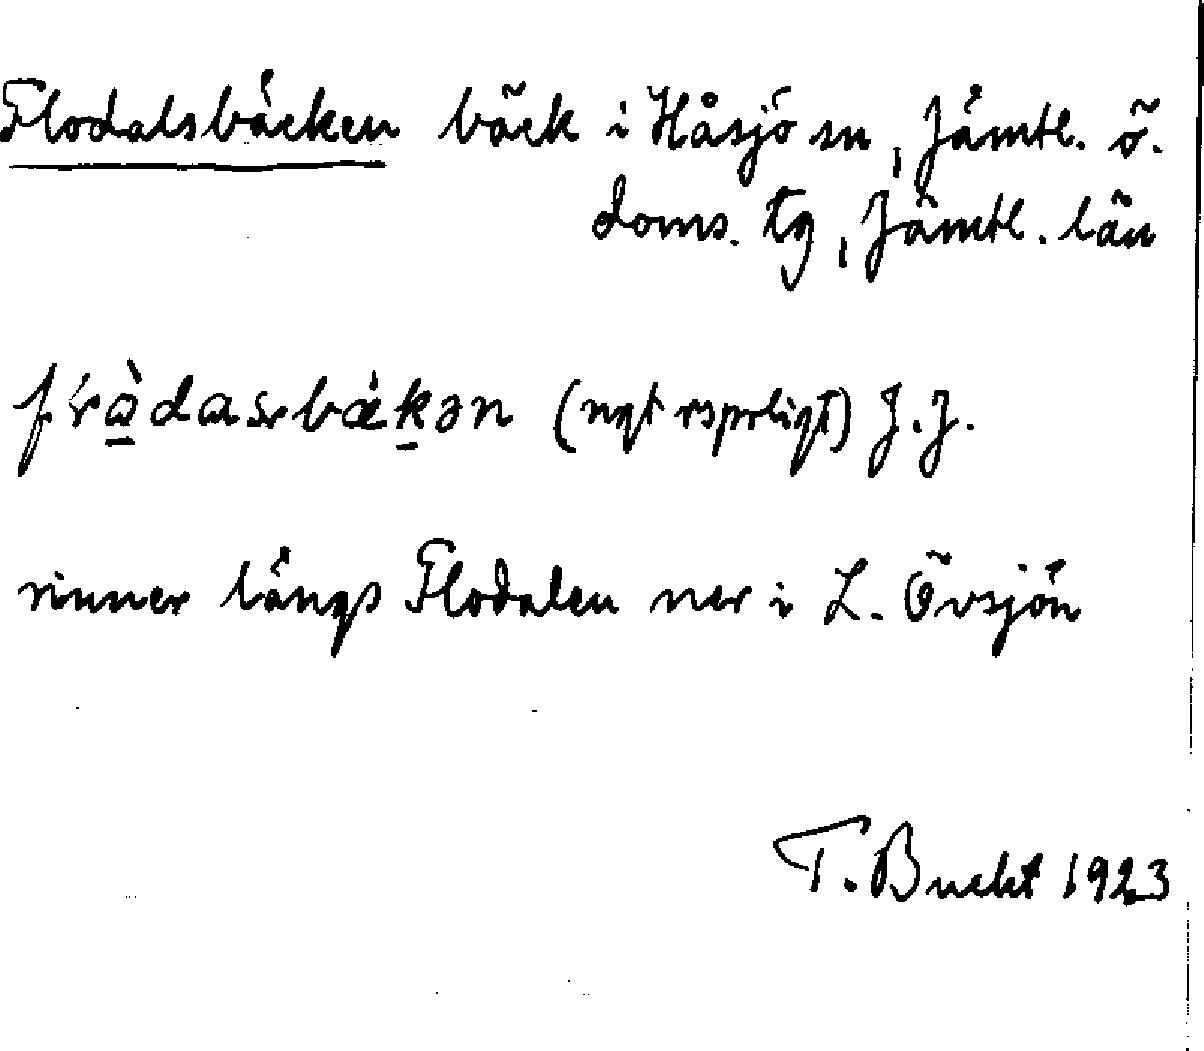 Flodalsbäcken bäck i Håsjö sn, Jämtl. ö.
doms. tg, Jämtl. län
fràdasbäkən (ngt rsprligt) J.J.
rinner längs Flodalen ner i L. Övsjön
T. Bucht 1923